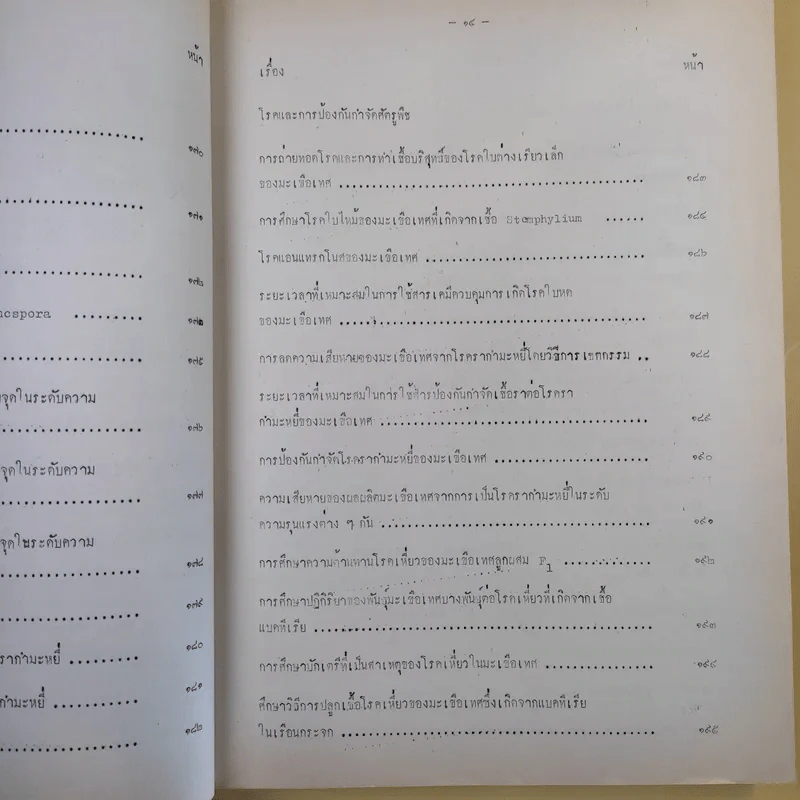 หน้า
๑๗๐
๑๗๑
๑๗๒
nospora .........
๑๗๓
๑๗๕
จุดในระดับความ
๑๗๖
จุดในระดับความ
๑๗๗
จุดในระดับความ
๑๗๘
๑๗๙
รากำมะหยี่ ......... ๑๘๐
กำมะหยี่ ......... ๑๘๑
๑๘๒
- ๑๔ -
เรื่อง หน้า
โรคและการป้องกันกำจัดศัตรูพืช
การถ่ายทอดโรคและการทำเชื้อบริสุทธิ์ของโรคใบด่างเรียวเล็ก
ของมะเขือเทศ ........................................ ๑๘๓
การศึกษาโรคใบไหม้ของมะเขือเทศที่เกิดจากเชื้อ Stemphylium ...... ๑๘๔
โรคแอนแทรกโนสของมะเขือเทศ .............................. ๑๘๖
ระยะเวลาที่เหมาะสมในการใช้สารเคมีควบคุมการเกิดโรคใบหด
ของมะเขือเทศ ........................................ ๑๘๗
การลดความเสียหายของมะเขือเทศจากโรครากำมะหยี่โดยวิธีการเขตกรรม .. ๑๘๘
ระยะเวลาที่เหมาะสมในการใช้สารป้องกันกำจัดเชื้อราต่อโรครา
กำมะหยี่ของมะเขือเทศ ................................... ๑๘๙
การป้องกันกำจัดโรครากำมะหยี่ของมะเขือเทศ ..................... ๑๙๐
ความเสียหายของผลผลิตมะเขือเทศจากการเป็นโรครากำมะหยี่ในระดับ
ความรุนแรงต่าง ๆ กัน ................................... ๑๙๑
การศึกษาความต้านทานโรคเหี่ยวของมะเขือเทศลูกผสม F1 ............ ๑๙๒
การศึกษาปฏิกิริยาของพันธุ์มะเขือเทศบางพันธุ์ต่อโรคเหี่ยวที่เกิดจากเชื้อ
แบคทีเรีย ............................................ ๑๙๓
การศึกษาบักเตรีที่เป็นสาเหตุของโรคเหี่ยวในมะเขือเทศ ............... ๑๙๔
ศึกษาวิธีการปลูกเชื้อโรคเหี่ยวของมะเขือเทศซึ่งเกิดจากแบคทีเรีย
ในเรือนกระจก ......................................... ๑๙๕